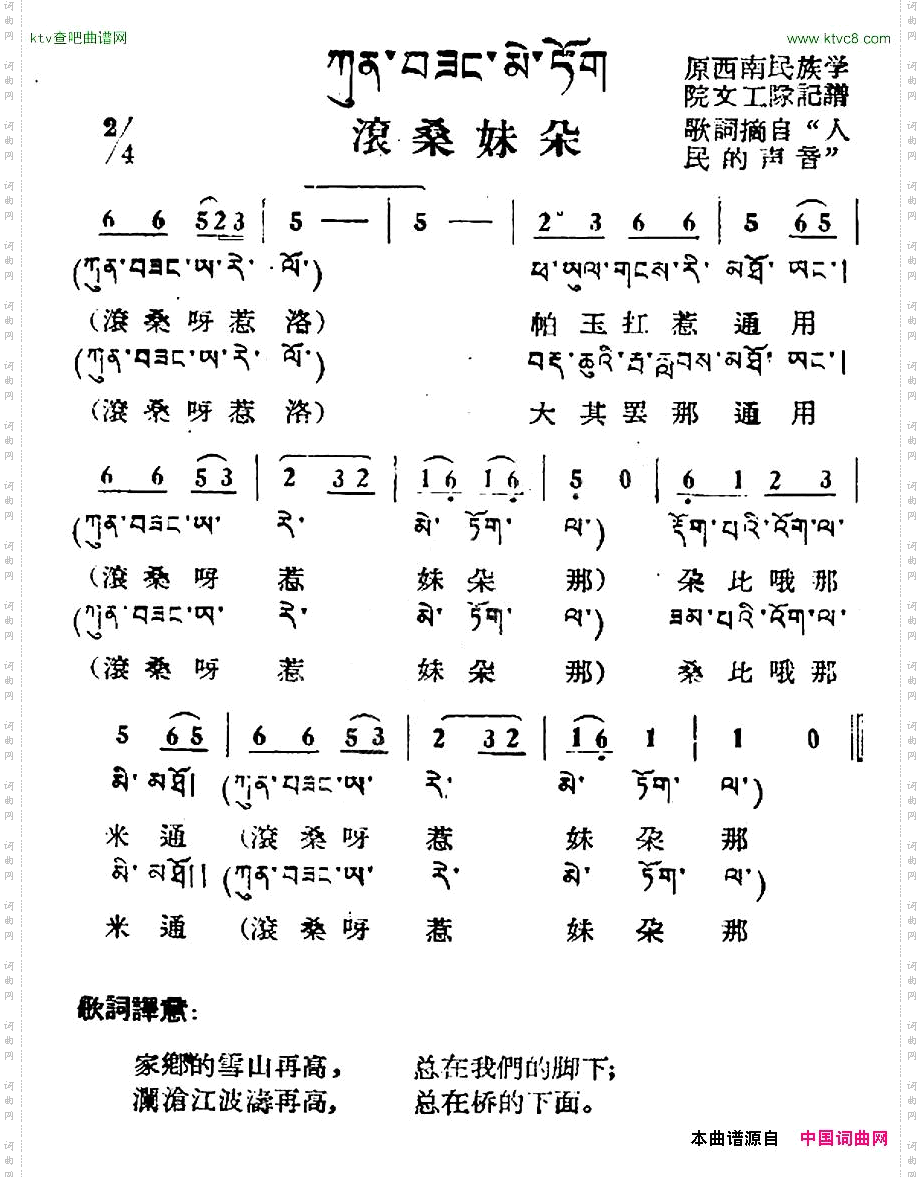 ktv查吧曲谱网
www.ktvc8.com
ཀུན་བཟང་མེ་ཏོག
滾桑妹朵
2/4
原西南民族学
院文工隊記譜
歌詞摘自“人
民的声音”
6 6 523 | 5 — | 5 — | 2 3 6 6 | 5 65 |
(ཀུན་བཟང་ཨ་རེ་ ལོ་) ཕ་ཡུལ་གངས་རི་ མ་ཐོ་ ཨང་།
(滾桑呀惹 洛) 帕玉扛惹 通用
(ཀུན་བཟང་ཨ་རེ་ ལོ་) མ་ཐོ་ ཨང་།
(滾桑呀惹 洛) 大其罢那 通用
6 6 53 | 2 32 | 16 16 | 5 0 | 6 1 2 3 |
(ཀུན་བཟང་ཨ་ རེ་ མེ་ ཏོག་ ལ་) རྡོག་པའི་འོག་ལ་
(滾桑呀 惹 妹朵 那) 朶比哦那
(ཀུན་བཟང་ཨ་ རེ་ མེ་ ཏོག་ ལ་) ཟམ་པའི་འོག་ལ་
(滾桑呀 惹 妹朵 那) 桑比哦那
5 65 | 6 6 53 | 2 32 | 16 1 | 1 0 ‖
མི་ མཐོ། (ཀུན་བཟང་ཨ་ རེ་ མེ་ ཏོག་ ལ་)
米通 (滾桑呀 惹 妹朵 那
མི་ མཐོ།། (ཀུན་བཟང་ཨ་ རེ་ མེ་ ཏོག་ ལ་)
米通 (滾桑呀 惹 妹朵 那
歌詞譯意:
家鄉的雪山再高, 总在我們的脚下;
瀾滄江波濤再高, 总在桥的下面。
本曲谱源自 中国词曲网